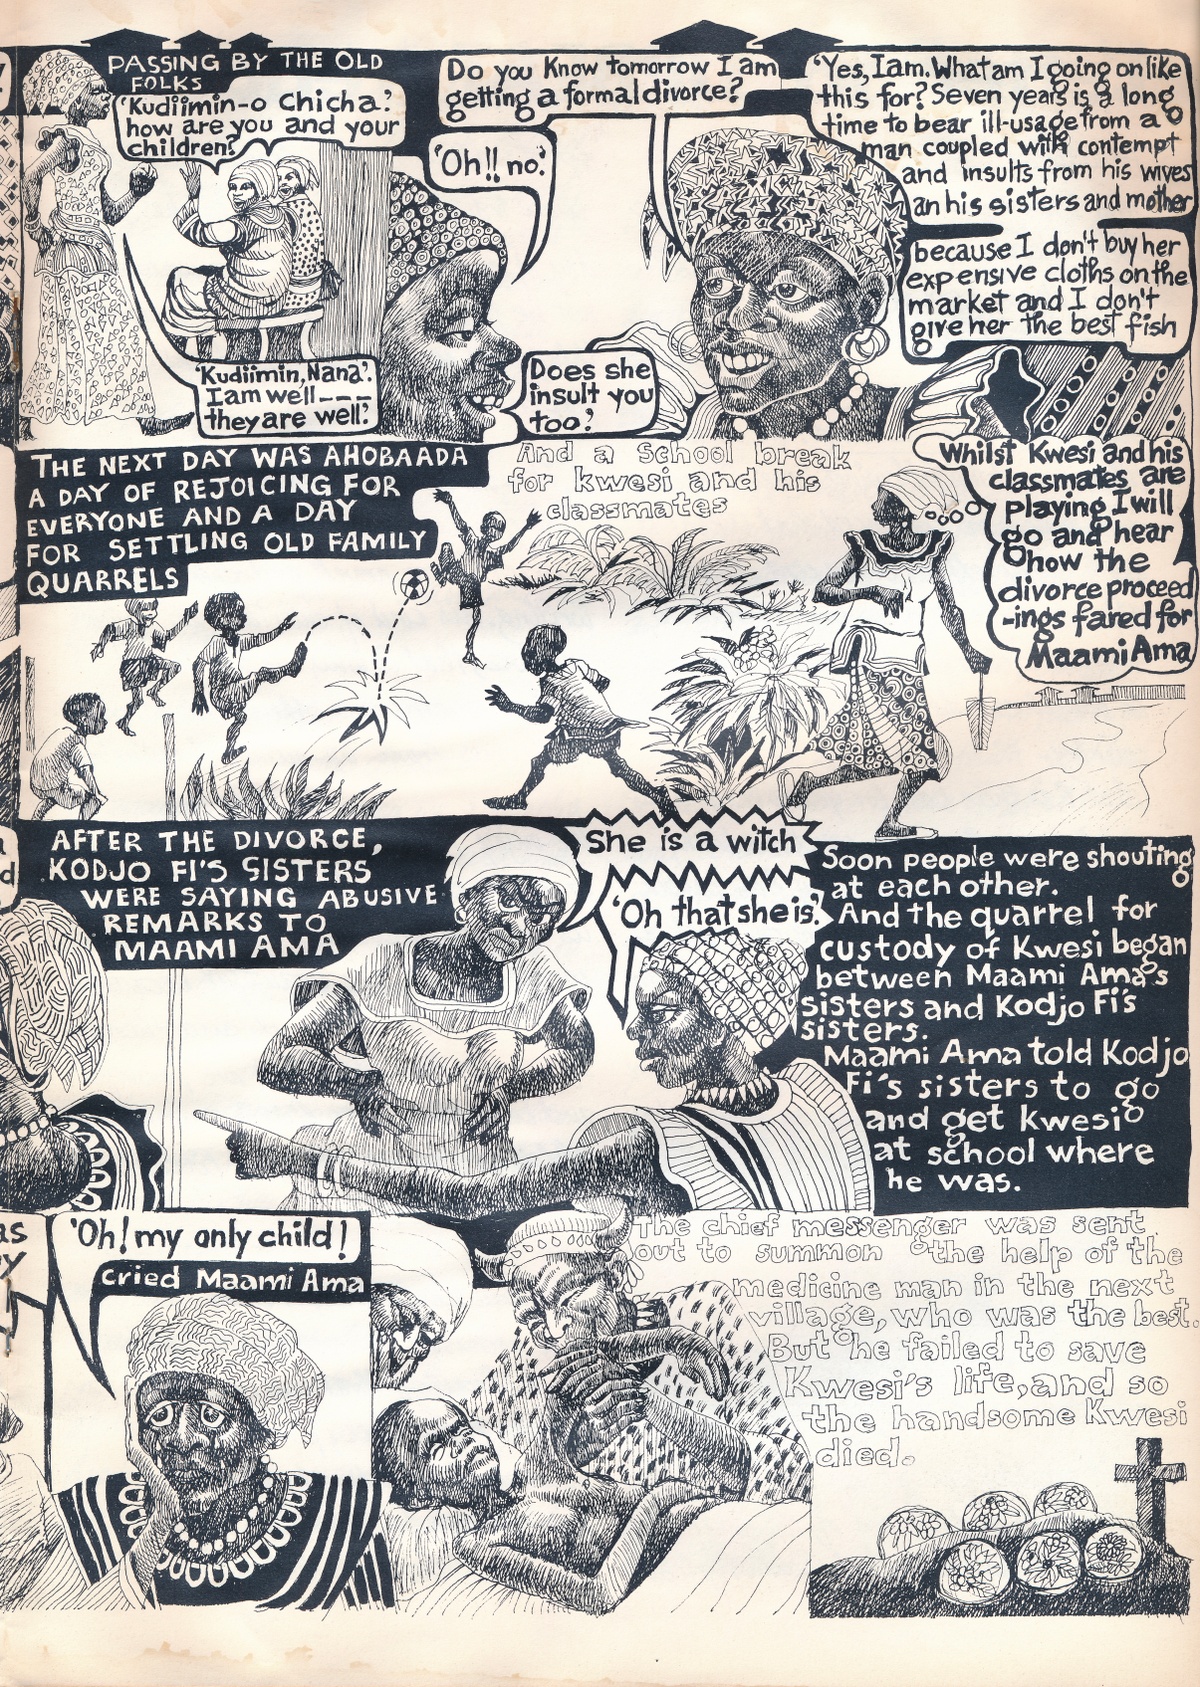 PASSING BY THE OLD
FOLKS
'Kudiimin-o Chicha.'
how are you and your
children?
'Kudiimin, Nana'.
I am well---
they are well.'
Do you Know tomorrow I am
getting a formal divorce?
'Oh!! no.'
Does she
insult you
too.'
'Yes, I am. What am I going on like
this for? Seven years is a long
time to bear ill-usage from a
man coupled with contempt
and insults from his wives
an his sisters and mother
because I don't buy her
expensive cloths on the
market and I don't
give her the best fish
THE NEXT DAY WAS AHOBAADA
A DAY OF REJOICING FOR
EVERYONE AND A DAY
FOR SETTLING OLD FAMILY
QUARRELS
And a School break
for kwesi and his
classmates
Whilst Kwesi and his
classmates are
playing I will
go and hear
how the
divorce proceed
-ings fared for
Maami Ama
AFTER THE DIVORCE,
KODJO FI'S SISTERS
WERE SAYING ABUSIVE
REMARKS TO
MAAMI AMA
She is a witch
'Oh that she is.'
Soon people were shouting
at each other.
And the quarrel for
custody of Kwesi began
between Maami Ama's
sisters and Kodjo Fi's
sisters.
Maami Ama told Kodjo
Fi's sisters to go
and get kwesi
at school where
he was.
'Oh! my only child!
cried Maami Ama
The chief messenger was sent
out to summon the help of the
medicine man in the next
village, who was the best.
But he failed to save
Kwesi's life, and so
the handsome Kwesi
died.